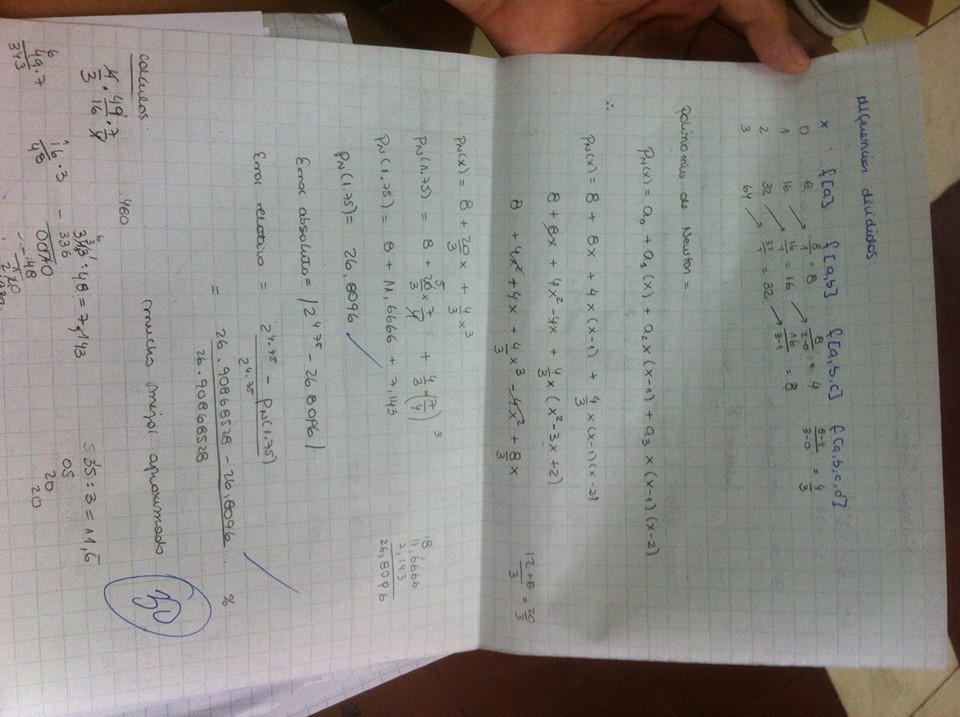 Diferencias divididas:
x f[a] f[a,b] f[a,b,c] f[a,b,c,d]
0 8 8/1 = 8 8/2-0 = 4 8-4/3-0 = 4/3
1 16 16/1 = 16 16/3-1 = 8
2 32 32/1 = 32
3 64
Polinomio de Newton =
PN(x) = a0 + a1(x) + a2x(x-1) + a3x(x-1)(x-2)
∴ PN(x) = 8 + 8x + 4x(x-1) + 4/3 x(x-1)(x-2)
8 + 8x + 4x²-4x + 4/3 x(x²-3x+2)
8 + 4x² + 4x + 4/3 x³ - 4x² + 8/3 x
12+8/3 = 20/3
PN(x) = 8 + 20/3 x + 4/3 x³
PN(1.75) = 8 + 20/3 x 7/4 + 4/3 (7/4)³
5
PN(1.75) = 8 + 11,6666 + 7,143
PN(1.75) = 26,8096
8
11,6666
7,143
26,8096
Error absoluto = |2^4.75 - 26.8096|
Error relativo = 2^4.75 - PN(1.75) / 2^4.75
= 26.90868528 - 26,8096 / 26.90868528 %
mucho mejor aproximado
30
calculos:
4/3 . 49/16 . 7/4
6
49.7
343
1
16.3
48
:48 = 7,143
336
35:3 = 11,6
05
20
20